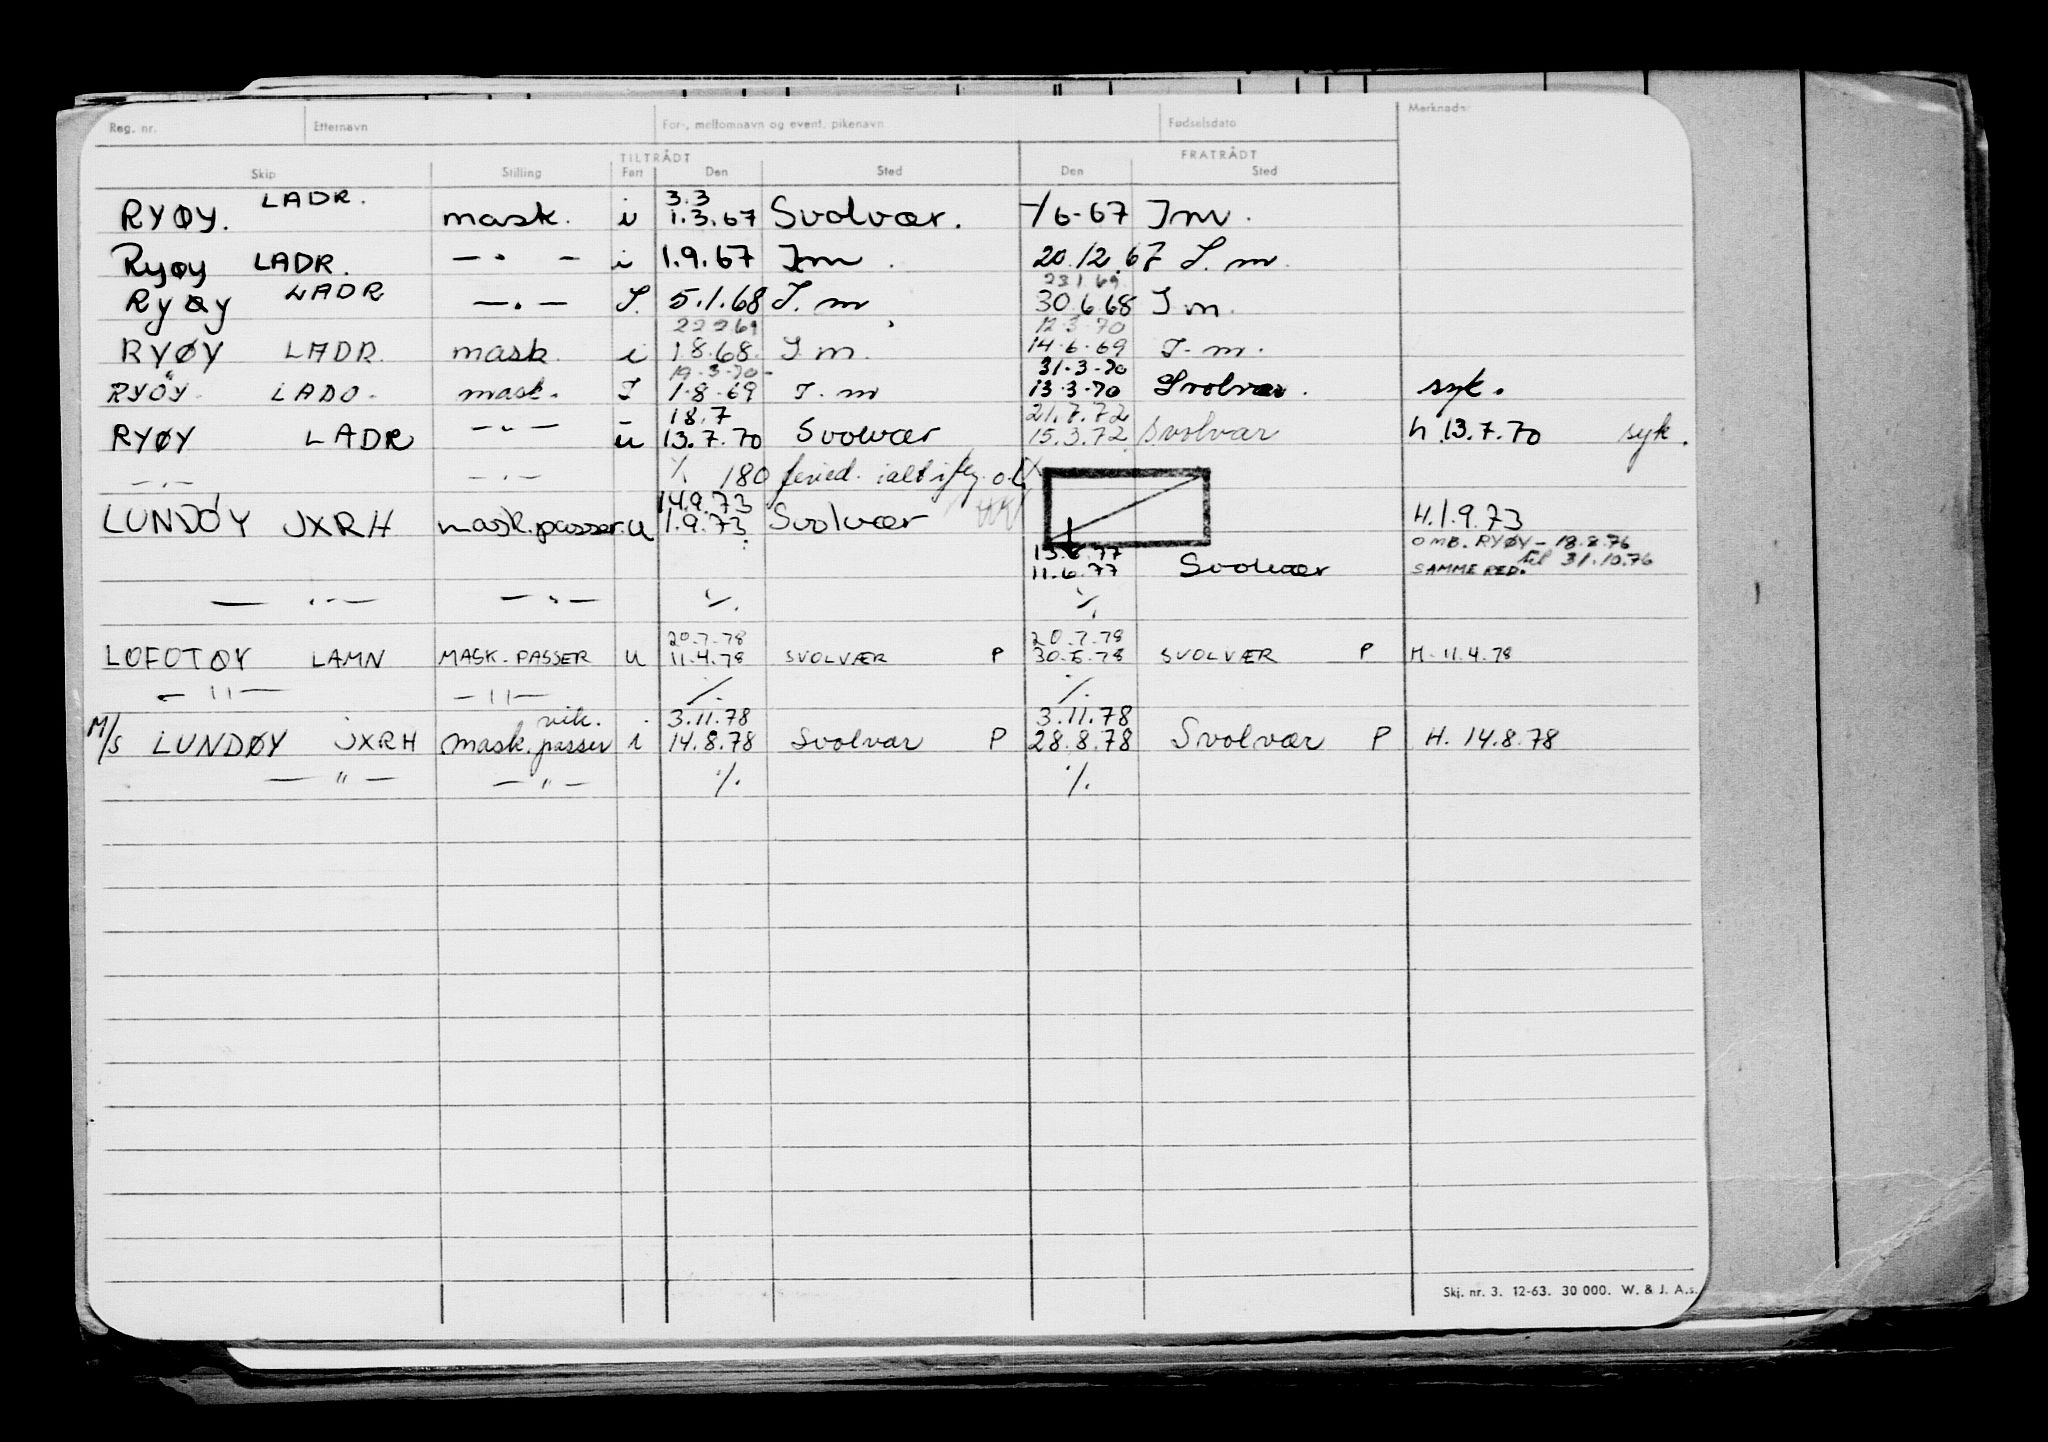 Reg. nr. Etternavn For-, mellomnavn og event. pikenavn Fødselsdato Merknader
TILTRÅDT FRATRÅDT
Skip Stilling Fart Den Sted Den Sted
3.3
RYØY. LADR. mask. u 1.3.67 Svolvær. -/6-67 I m.
Ryøy LADR. — " — i 1.9.67 I m. 20.12.67 I. m.
23.1.69
Ryøy LADR — " — I. 5.1.68 I. m 30.6.68 I m.
22.2.69 12.3.70
RYØY LADR. mask. i 1.8.68. I. m. 14.6.69 I. m.
19.3.70- 31.3.70
RYÖY. LADO. mask. I 1.8.69 I. m 13.3.70 Svolvær. syk.
18.7 21.7.72
RYØY LADR — " — u 13.7.70 Svolvær 15.3.72 Svolvær h. 13.7.70 syk.
— " — — " — ./. 180
14.9.73
LUNDÖY JXRH mask.passer. u 1.9.73 Svolvær H.1.9.73
OMB. RYØY - 18.8.76
til 31.10.76
11.6.77 Svolvær SAMME RED.
— " — — " — ./. ./.
20.7.78 20.7.78
LOFOTØY LAMN MASK. PASSER U 11.4.78 SVOLVÆR P 30.5.78 SVOLVÆR P H. 11.4.78
— " — — " — ./. ./.
vik. 3.11.78 3.11.78
M/S LUNDØY JXRH Mask.passer i 14.8.78 Svolvær P 28.8.78 Svolvær P H. 14.8.78
— " — — " — ./. ./.
Skj. nr. 3. 12-63. 30 000. W. & J. A.s.